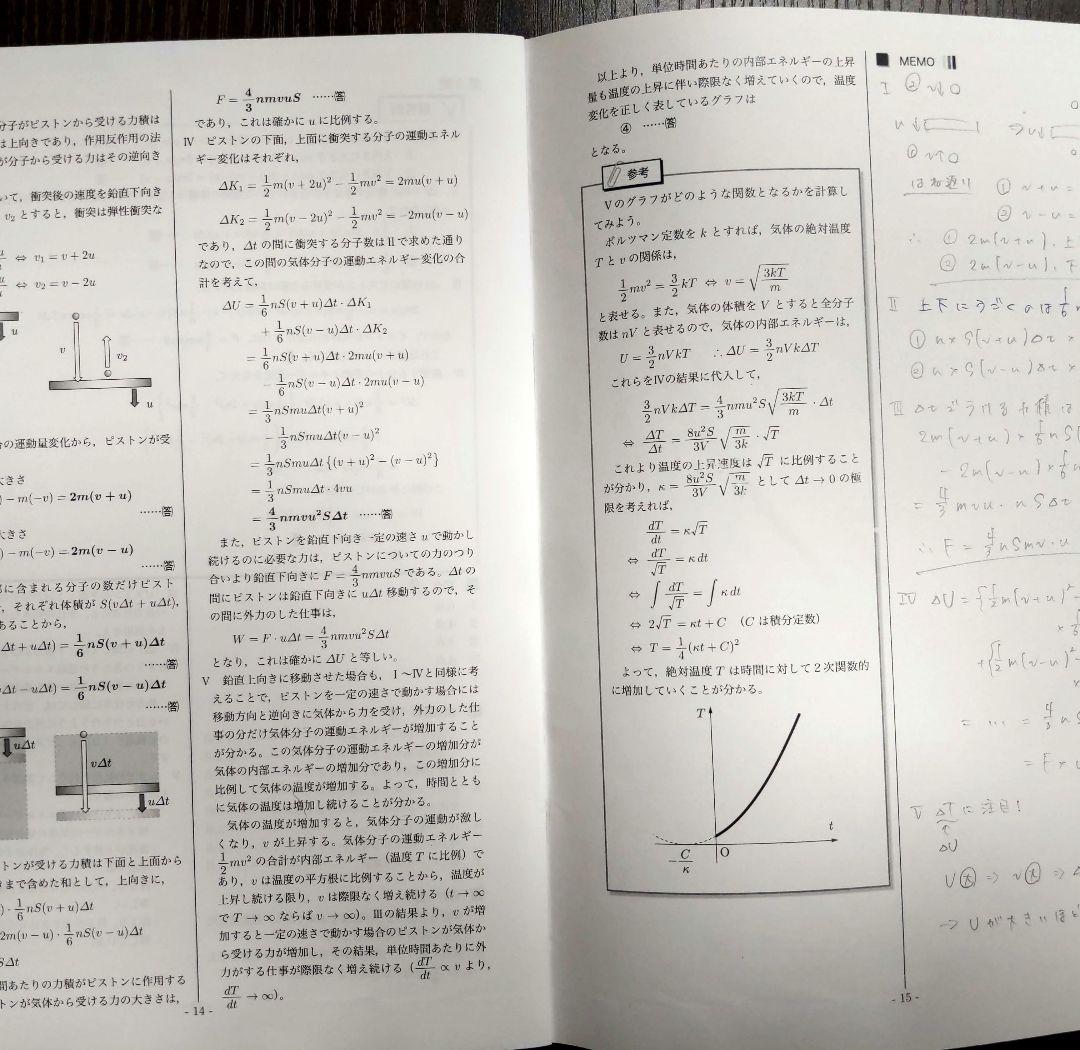 分子がピストンから受ける力積は
は上向きであり，作用反作用の法
が分子から受ける力はその逆向き
いて，衝突後の速度を鉛直下向き
v₂ とすると，衝突は弾性衝突な
⇔ v₁ = v + 2u
⇔ v₂ = v − 2u
u
v
v₂
u
合の運動量変化から，ピストンが受
大きさ
) − m(−v) = 2m(v + u)
……答
大きさ
) − m(−v) = 2m(v − u)
……答
に含まれる分子の数だけピスト
，それぞれ体積が S(vΔt + uΔt)，
あることから，
Δt + uΔt) = 1/6 nS(v + u)Δt
……答
vΔt − uΔt) = 1/6 nS(v − u)Δt
……答
uΔt
vΔt
uΔt
ストンが受ける力積は下面と上面から
きまで含めた和として，上向きに，
) · 1/6 nS(v + u)Δt
2m(v − u) · 1/6 nS(v − u)Δt
SΔt
間あたりの力積がピストンに作用する
トンが気体から受ける力の大きさは，
F = 4/3 nmvuS ……答
であり，これは確かに u に比例する。
Ⅳ ピストンの下面，上面に衝突する分子の運動エネル
ギー変化はそれぞれ，
ΔK₁ = 1/2 m(v + 2u)² − 1/2 mv² = 2mu(v + u)
ΔK₂ = 1/2 m(v − 2u)² − 1/2 mv² = −2mu(v − u)
であり，Δt の間に衝突する分子数はⅡで求めた通り
なので，この間の気体分子の運動エネルギー変化の合
計を考えて，
ΔU = 1/6 nS(v + u)Δt · ΔK₁
+ 1/6 nS(v − u)Δt · ΔK₂
= 1/6 nS(v + u)Δt · 2mu(v + u)
− 1/6 nS(v − u)Δt · 2mu(v − u)
= 1/3 nSmuΔt(v + u)²
− 1/3 nSmuΔt(v − u)²
= 1/3 nSmuΔt {(v + u)² − (v − u)²}
= 1/3 nSmuΔt · 4vu
= 4/3 nmvu²SΔt ……答
また，ピストンを鉛直下向き一定の速さ u で動かし
続けるのに必要な力は，ピストンについての力のつり
合いより鉛直下向きに F = 4/3 nmvuS である。Δt の
間にピストンは鉛直下向きに uΔt 移動するので，そ
の間に外力のした仕事は，
W = F · uΔt = 4/3 nmvu²SΔt
となり，これは確かに ΔU と等しい。
Ⅴ 鉛直上向きに移動させた場合も，Ⅰ～Ⅳと同様に考
えることで，ピストンを一定の速さで動かす場合には
移動方向と逆向きに気体から力を受け，外力のした仕
事の分だけ気体分子の運動エネルギーが増加すること
が分かる。この気体分子の運動エネルギーの増加分が
気体の内部エネルギーの増加分であり，この増加分に
比例して気体の温度が増加する。よって，時間ととも
に気体の温度は増加し続けることが分かる。
気体の温度が増加すると，気体分子の運動が激し
くなり，v が上昇する。気体分子の運動エネルギー
1/2 mv² の合計が内部エネルギー（温度 T に比例）で
あり，v は温度の平方根に比例することから，温度が
上昇し続ける限り，v は際限なく増え続ける（t → ∞
で T → ∞ ならば v → ∞）。Ⅲの結果より，v が増
加すると一定の速さで動かす場合のピストンが気体か
ら受ける力が増加し，その結果，単位時間あたりに外
力がする仕事が際限なく増え続ける（dT/dt ∝ v より，
dT/dt → ∞）。
- 14 -
以上より，単位時間あたりの内部エネルギーの上昇
量も温度の上昇に伴い際限なく増えていくので，温度
変化を正しく表しているグラフは
④ ……答
となる。
参考
Ⅴのグラフがどのような関数となるかを計算し
てみよう。
ボルツマン定数を k とすれば，気体の絶対温度
T と v の関係は，
1/2 mv² = 3/2 kT ⇔ v = √(3kT/m)
と表せる。また，気体の体積を V とすると全分子
数は nV と表せるので，気体の内部エネルギーは，
U = 3/2 nVkT ∴ ΔU = 3/2 nVkΔT
これらをⅣの結果に代入して，
3/2 nVkΔT = 4/3 nmu²S √(3kT/m) · Δt
⇔ ΔT/Δt = 8u²S/3V √(m/3k) · √T
これより温度の上昇速度は √T に比例すること
が分かり，κ = 8u²S/3V √(m/3k) として Δt → 0 の極
限を考えれば，
dT/dt = κ√T
⇔ dT/√T = κ dt
⇔ ∫ dT/√T = ∫ κ dt
⇔ 2√T = κt + C （C は積分定数）
⇔ T = 1/4 (κt + C)²
よって，絶対温度 T は時間に対して 2 次関数的
に増加していくことが分かる。
T
t
O
−C/κ
- 15 -
MEMO
Ⅰ ② v↓○
u↓
① v↑○
はね返り
① v + u =
② v − u =
∴ ① 2m(v+u), 上
② 2m(v−u), 下
Ⅱ 上下にうごくのは 1/6 n
① n × S(v+u)Δt ×
② n × S(v−u)Δt ×
Ⅲ Δt でうける力積は
2m(v+u) × 1/6 nS(
− 2m(v−u) × 1/6 n
= 4/3 mvu · nSΔt
∴ F = 4/3 nSmv·u
Ⅳ ΔU = {1/2 m(v+u)² −
+ {1/2 m(v−u)² −
= … = 4/3 nS
= F × u
Ⅴ ΔT に注目！
ΔU
U大 ⇒ v大 ⇒
→ Uが大きいほど